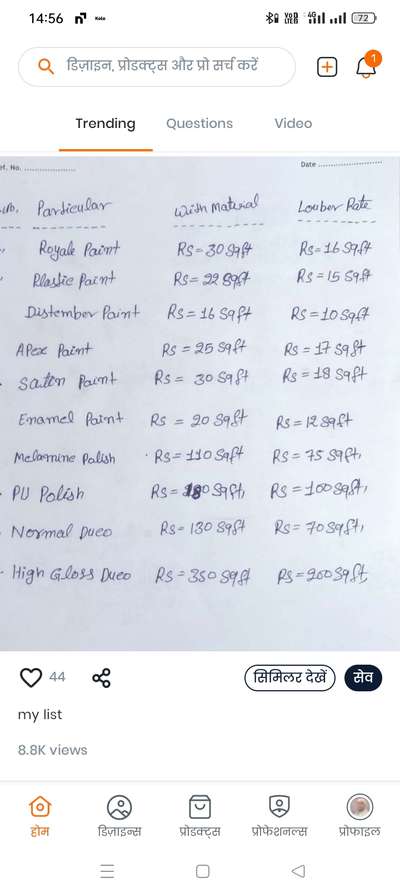 14:56
4G
72
डिज़ाइन, प्रोडक्ट्स और प्रो सर्च करें
1
Trending Questions Video
ef. No. .................... Date ........................
Particular With Material Louber Rate
Royale Paint RS=30 Sqft RS=16 Sqft
Plastic Paint RS=22 Sqft RS=15 Sqft
Distember Paint RS=16 Sqft RS=10 Sqft
APex Paint RS=25 Sqft RS=17 Sqft
Saten Paint RS=30 Sqft RS=18 Sqft
Enamel Paint RS=20 Sqft RS=12 Sqft
Melamine Polish RS=110 Sqft RS=75 Sqft
PU Polish RS=180 Sqft RS=100 Sqft
Normal Dueo RS=130 Sqft RS=70 Sqft
High Gloss Dueo RS=350 Sqft RS=200 Sqft
44 सिमिलर देखें सेव
my list
8.8K views
होम डिज़ाइन्स प्रोडक्ट्स प्रोफेशनल्स प्रोफाइल